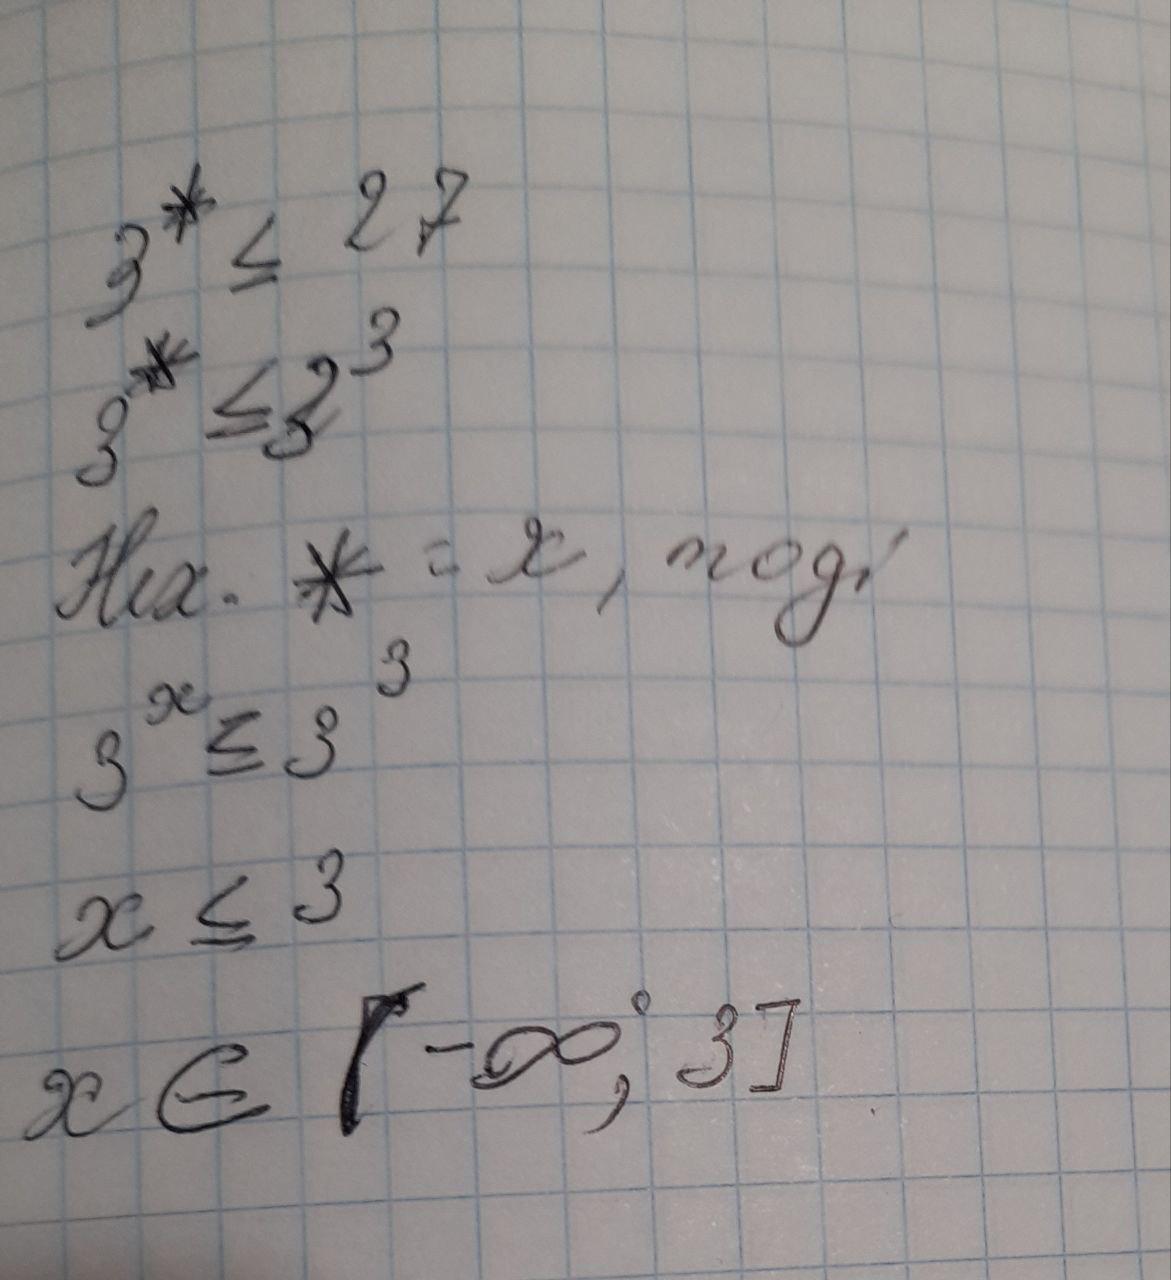 3* ≤ 27
3* ≤ 3³
Нех. * = x, тоді
3ˣ ≤ 3³
x ≤ 3
x ∈ [-∞; 3]